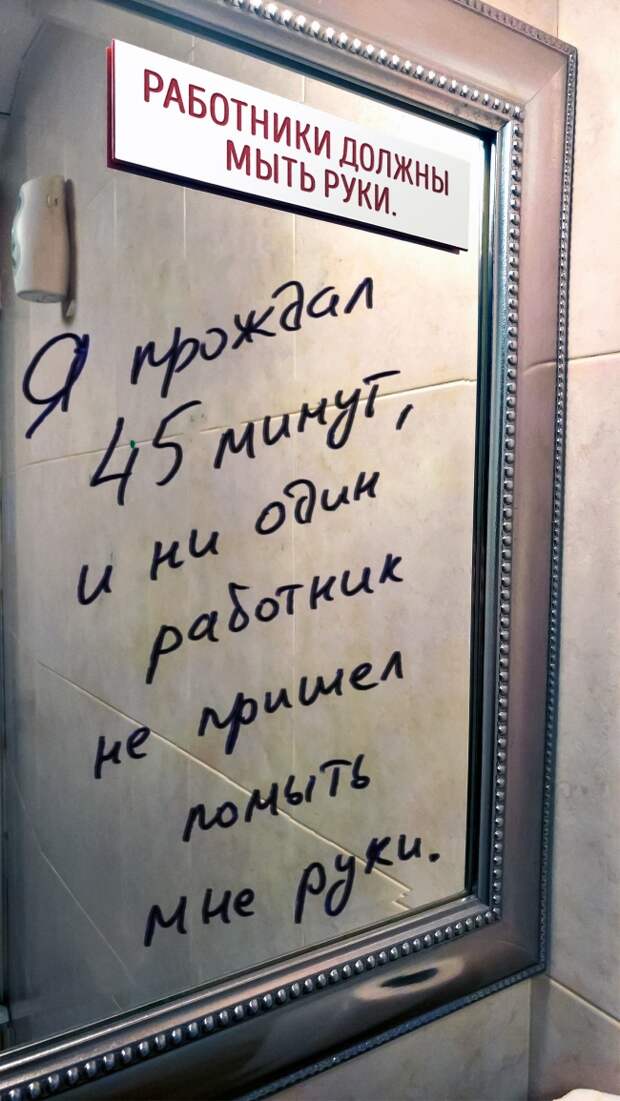 РАБОТНИКИ ДОЛЖНЫ
МЫТЬ РУКИ.
Я прождал
45 минут,
и ни один
работник
не пришел
помыть
мне руки.